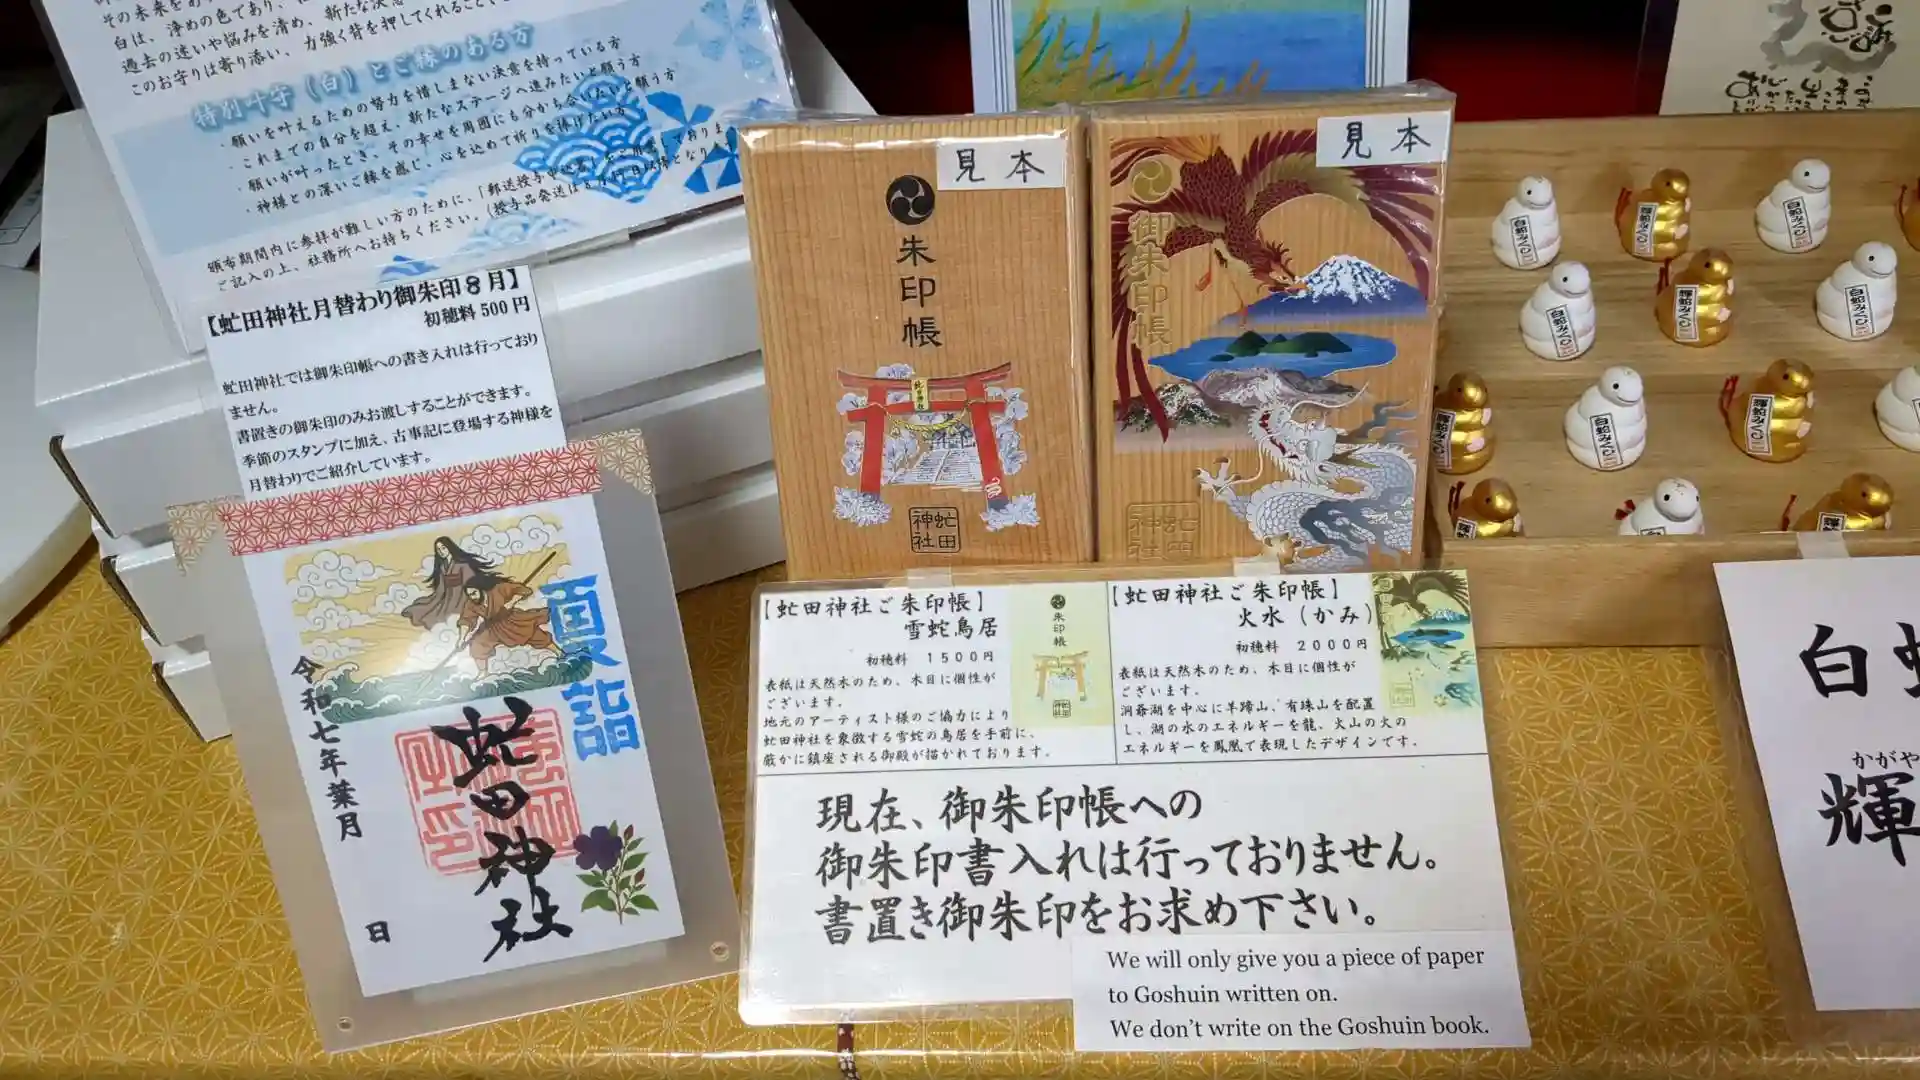 その未来をあ
白は、浄めの色であり、
過去の迷いや悩みを清め、新たな決意
このお守りは寄り添い、力強く背を押してくれること
特別叶守（白）とご縁のある方
・願いを叶えるための努力を惜しまない決意を持っている方
・これまでの自分を超え、新たなステージへ進みたいと願う方
・願いが叶ったとき、その幸せを周囲にも分かち合いたいと願う方
・神様との深いご縁を感じ、心を込めて祈りを捧げたい方
頒布期間内に参拝が難しい方のために、「郵送授与申込書」をご用意しておりま
ご記入の上、社務所へお持ちください。（授与品発送は
【虻田神社月替わり御朱印8月】
初穂料500円
虻田神社では御朱印帳への書き入れは行っており
ません。
書置きの御朱印のみお渡しすることができます。
季節のスタンプに加え、古事記に登場する神様を
月替わりでご紹介しています。
夏詣
令和七年葉月
日
虻田神社
見本
朱印帳
虻田神社
見本
御朱印帳
虻田神社
白蛇みくじ
輝蛇みくじ
白蛇みくじ
白蛇みくじ
輝蛇みくじ
白蛇みくじ
輝蛇みくじ
白蛇みくじ
輝蛇みくじ
【虻田神社ご朱印帳】
雪蛇鳥居
初穂料 1500円
表紙は天然木のため、木目に個性が
ございます。
地元のアーティスト様のご協力により
虻田神社を象徴する雪蛇の鳥居を手前に、
厳かに鎮座される御殿が描かれております。
【虻田神社ご朱印帳】
火水（かみ）
初穂料 2000円
表紙は天然木のため、木目に個性が
ございます。
洞爺湖を中心に羊蹄山、有珠山を配置
し、湖の水のエネルギーを龍、火山の火の
エネルギーを鳳凰で表現したデザインです。
朱印帳
現在、御朱印帳への
御朱印書入れは行っておりません。
書置き御朱印をお求め下さい。
We will only give you a piece of paper
to Goshuin written on.
We don't write on the Goshuin book.
白
かがや
輝